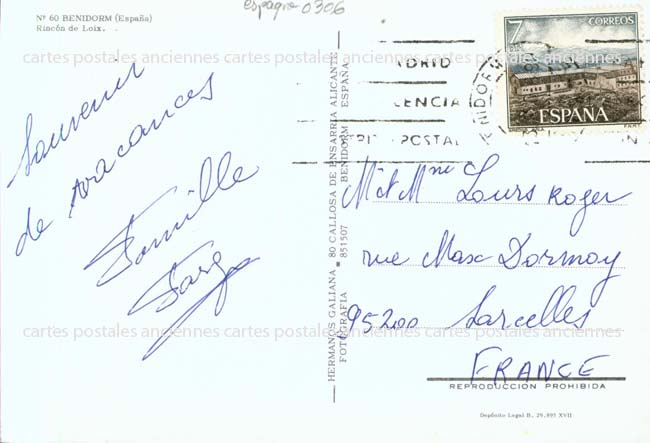 espagne 0306
Nº 60 BENIDORM (España)
Rincón de Loix.
Souvenir
de vacances
Famille
HERMANOS GALIANA ■ 80 CALLOSA DE ENSARRIA ALICANTE
FOTOGRAFIA 851507 BENIDORM ESPAÑA
7
PTAS
CORREOS
ESPAÑA
BENIDORM
Mr et Mme Louis Roger
rue Max Dormoy
95200 Sarcelles
FRANCE
REPRODUCCIÓN PROHIBIDA
Depósito Legal B. 29.895 XVII
cartes postales anciennes cartes postales anciennes cartes postales anciennes
cartes postales anciennes cartes postales anciennes cartes postales anciennes